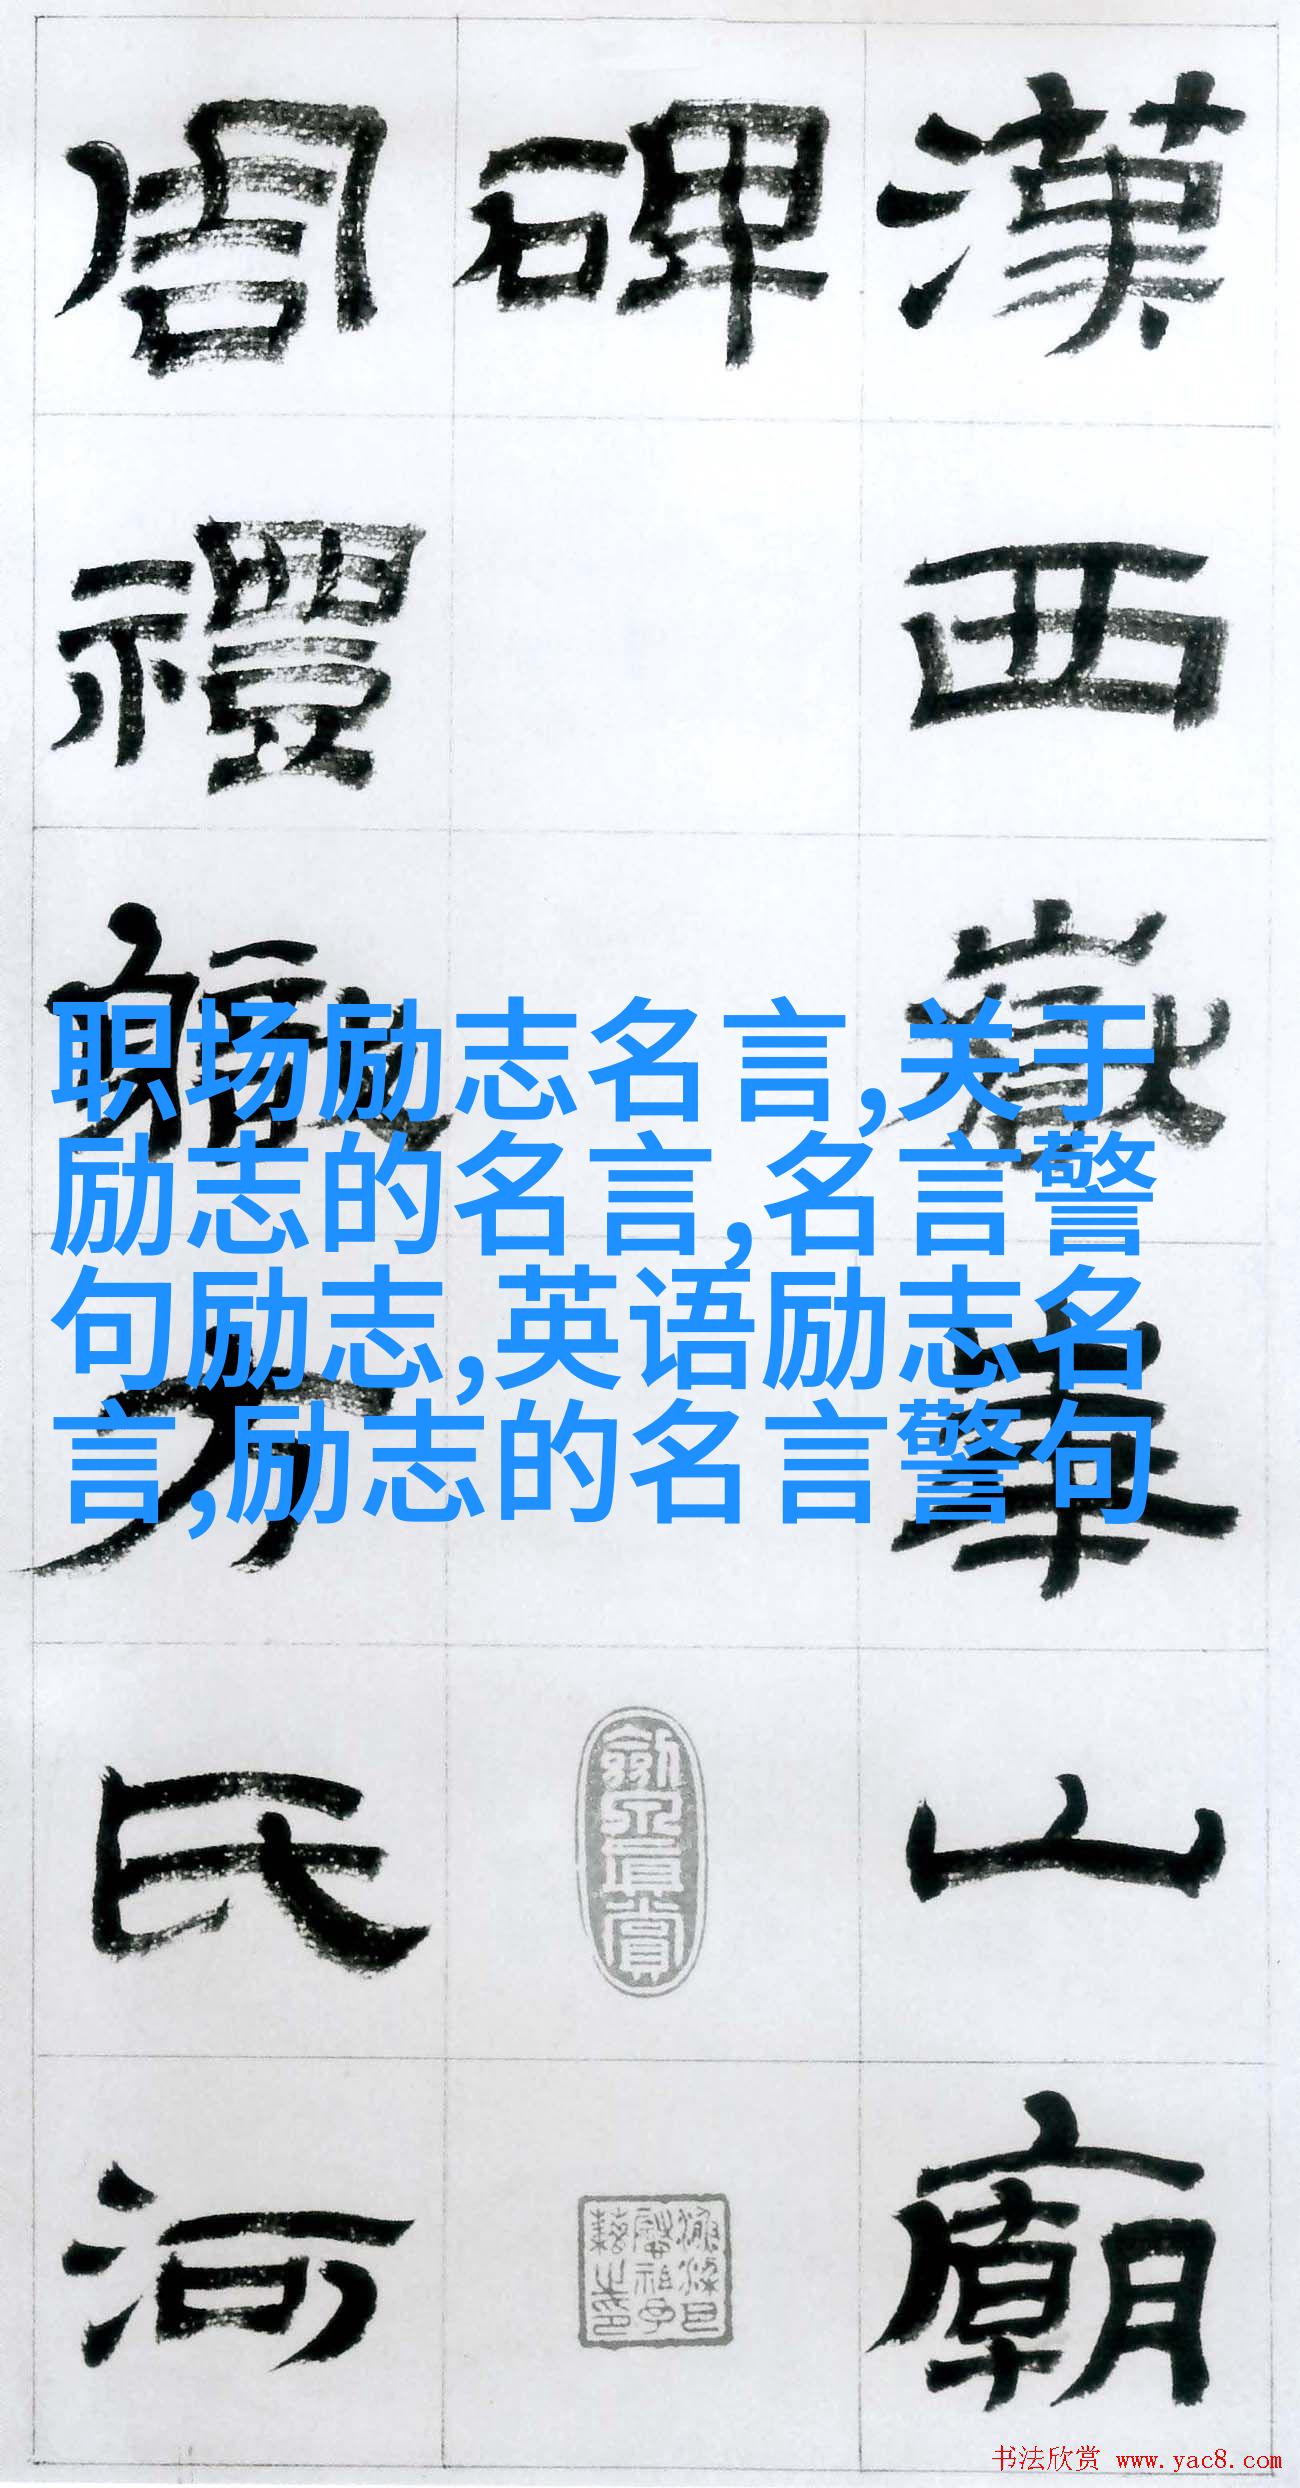 漢西嶽華山廟
碑
周禮職方氏河
职场励志名言,关于
励志的名言,名言警
句励志,英语励志名
言,励志的名言警句
书法欣赏 www.yac8.com